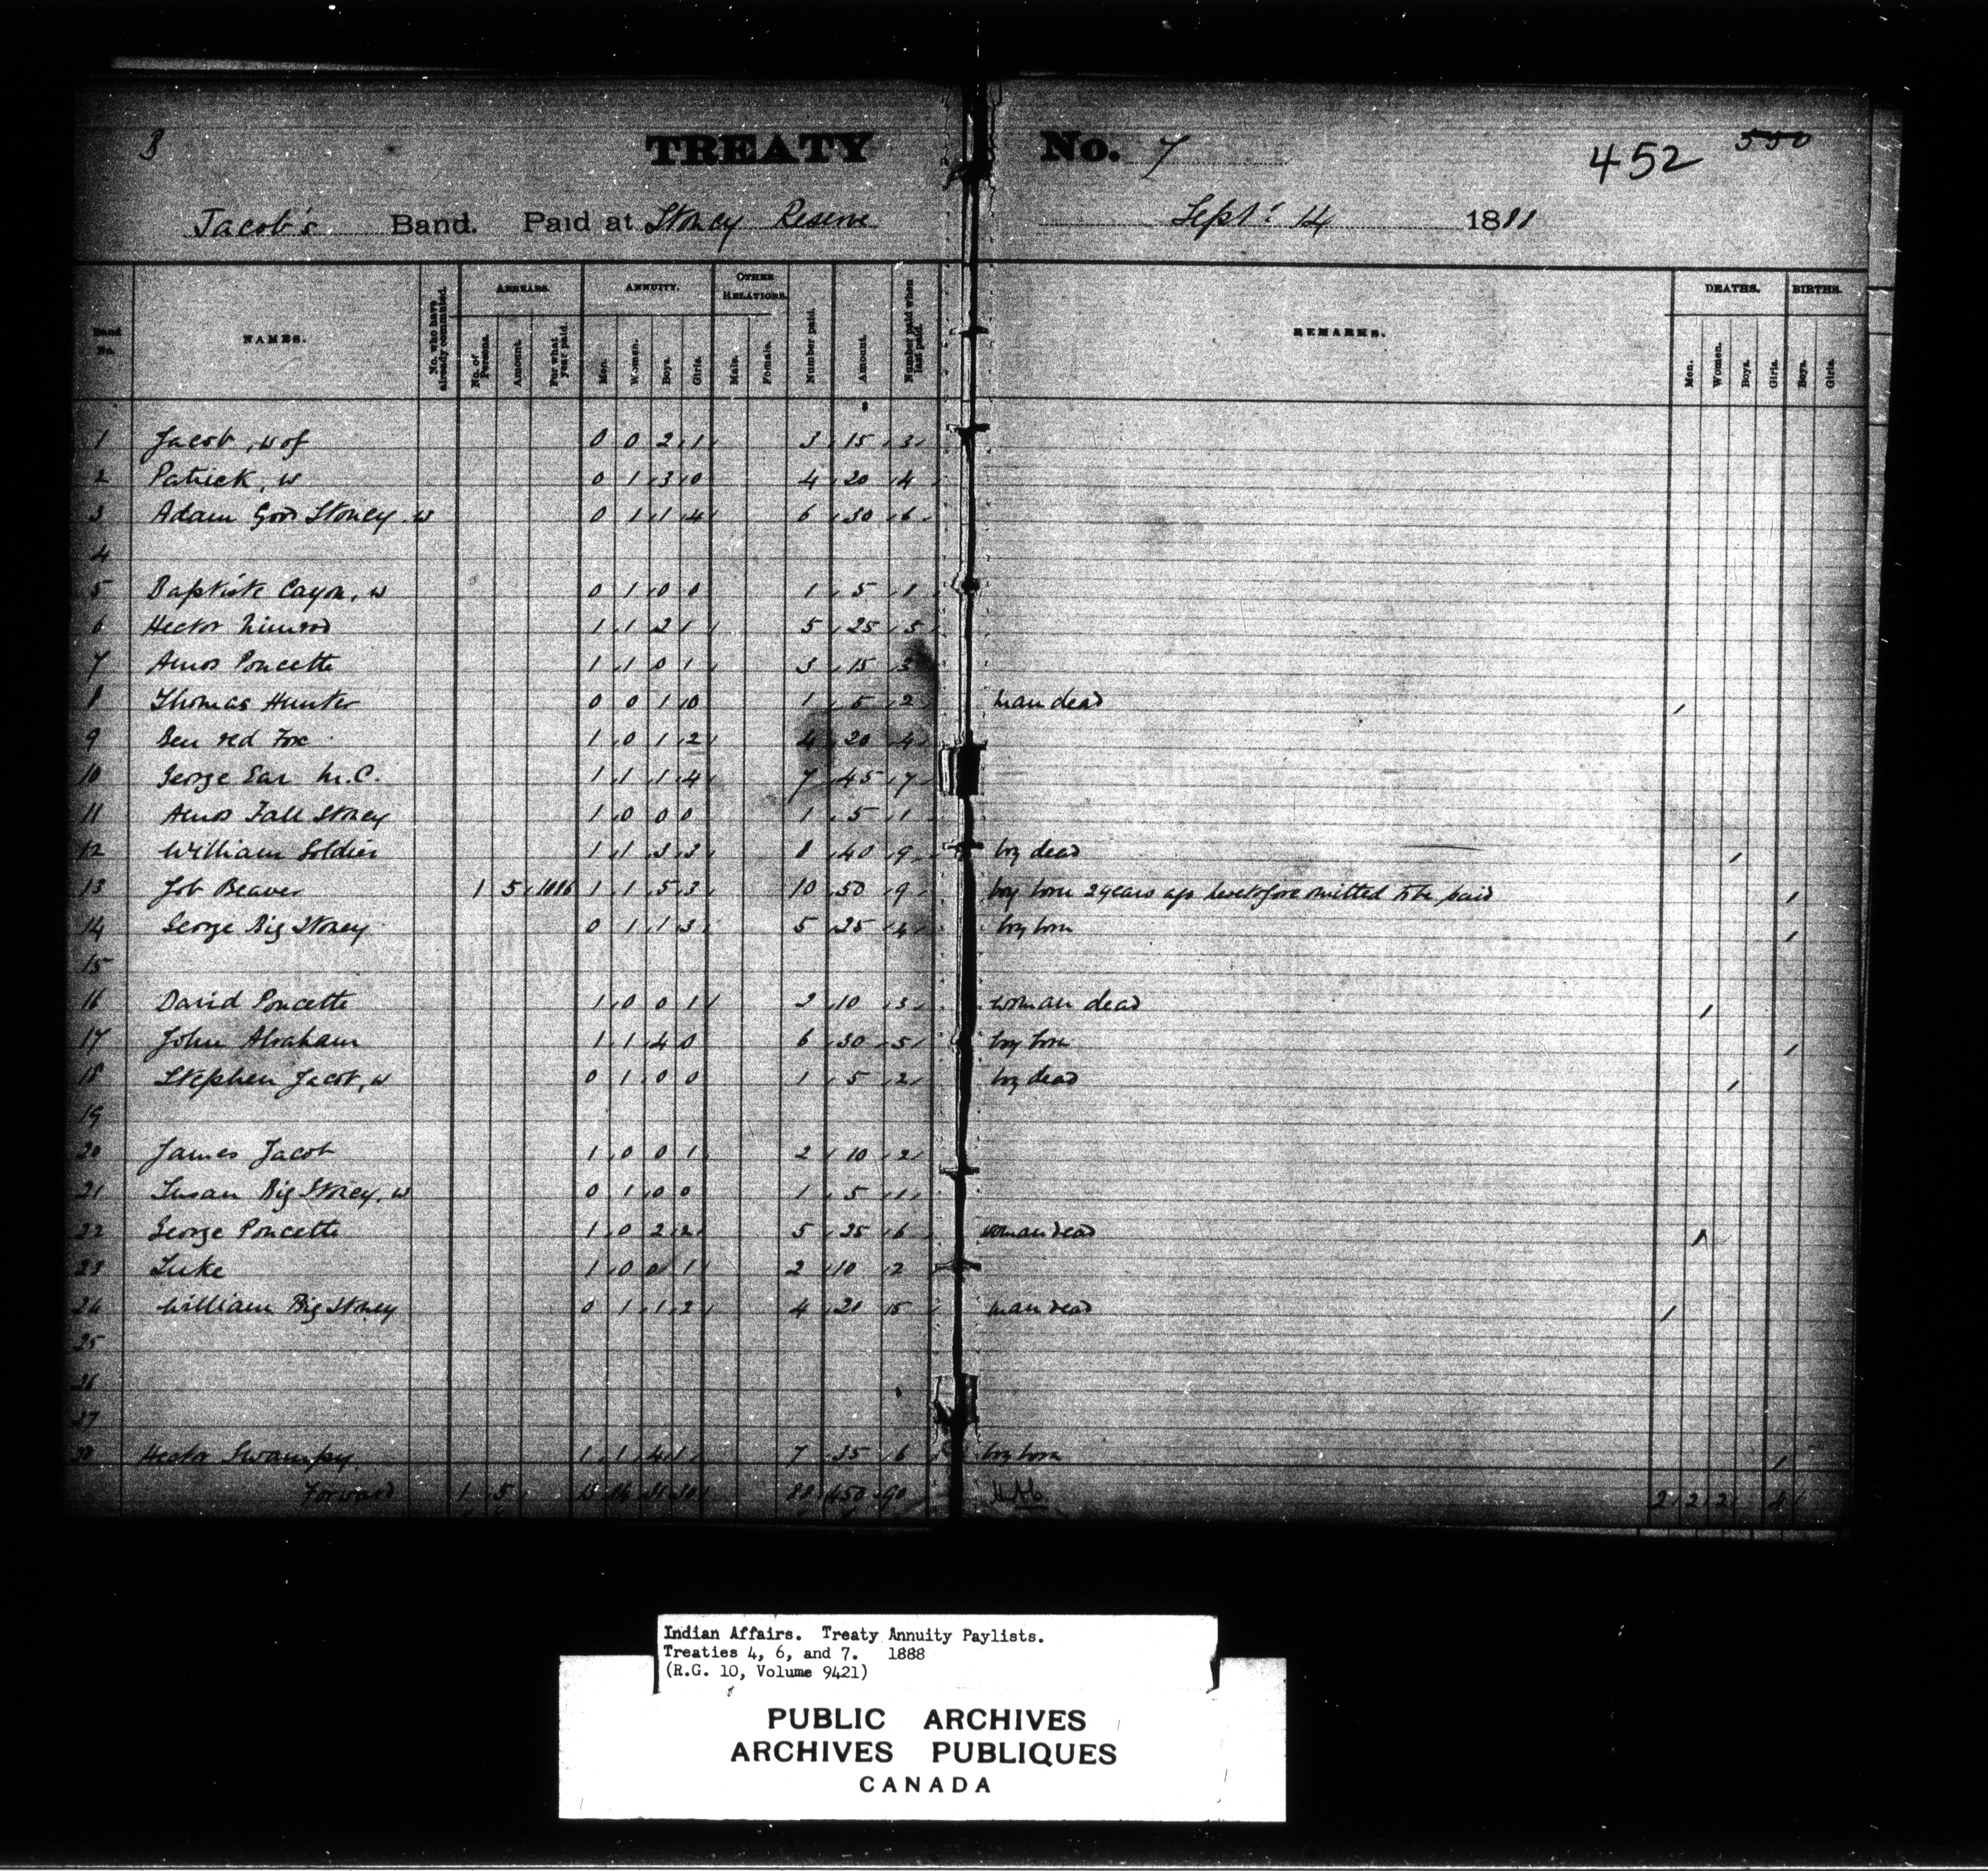 3 TREATY No. 7 452 550
Jacob's Band. Paid at Stoney Reserve Sept: 14 1888
Band No. NAMES. No. who have already commuted. ARREARS. No. of Persons. Amount. For what year paid. ANNUITY. Men. Women. Boys. Girls. OTHER RELATIONS. Male. Female. Number paid. Amount. Number paid when last paid. REMARKS. DEATHS. Men. Women. Boys. Girls. BIRTHS. Boys. Girls.
1 Jacob, w of 0 0 2 1 3 15 3
2 Patrick, w 0 1 3 0 4 20 4
3 Adam Good Stoney w 0 1 1 4 6 30 6
4
5 Baptiste Cayon, w 0 1 0 0 1 5 1
6 Hector Nimrod 1 1 2 1 5 25 5
7 Amos Poucette 1 1 0 1 3 15 3
8 Thomas Hunter 0 0 1 0 1 5 2 man dead 1
9 Ben red Fox 1 0 1 2 4 20 4
10 George Ear M.C. 1 1 1 4 7 45 7
11 Amos Fall Stoney 1 0 0 0 1 5 1
12 William Soldier 1 1 3 3 8 40 9 boy dead 1
13 Job Beaver 1 5 1886 1 1 5 3 10 50 9 boy born 2 years ago heretofore omitted to be paid 1
14 George Big Stoney 0 1 1 3 5 25 4 boy born 1
15
16 David Poucette 1 0 0 1 2 10 3 woman dead 1
17 John Abraham 1 1 4 0 6 30 5 boy born 1
18 Stephen Jacob, w 0 1 0 0 1 5 2 boy dead 1
19
20 James Jacob 1 0 0 1 2 10 2
21 Susan Big Stoney, w 0 1 0 0 1 5 1
22 George Poucette 1 0 2 2 5 25 6 woman dead 1
23 Luke 1 0 0 1 2 10 2
24 William Big Stoney 0 1 1 2 4 20 5 man dead 1
25
26
27
Hector Swampy 1 1 4 1 7 35 6 boy born 1
Forward 1 5 13 14 31 30 88 450 90 2 2 2 4
Indian Affairs. Treaty Annuity Paylists.
Treaties 4, 6, and 7. 1888
(R.G. 10, Volume 9421)
PUBLIC ARCHIVES
ARCHIVES PUBLIQUES
CANADA